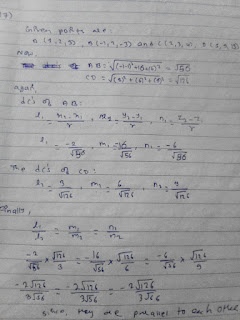 7)
Given points are:
Now,
AB = √
CD = √ = √126
again,
dc's of AB:
l₁ = x₂ - x₁ / r, m₁ = y₂ - y₁ / r, n₁ = z₂ - z₁ / r
l₁ = -2 / √56, m₁ = / √56, n₁ = -6 / √56
The dc's of CD:
l₂ = 3 / √126, m₂ = 6 / √126, n₂ = 9 / √126
Finally,
l₁ / l₂ = m₁ / m₂ = n₁ / n₂
-2 / √56 × √126 / 3 = / √56 × √126 / 6 = -6 / √56 × √126 / 9
-2√126 / 3√56 = -2√126 / 3√56 = -2√126 / 3√56
they are parallel to each other